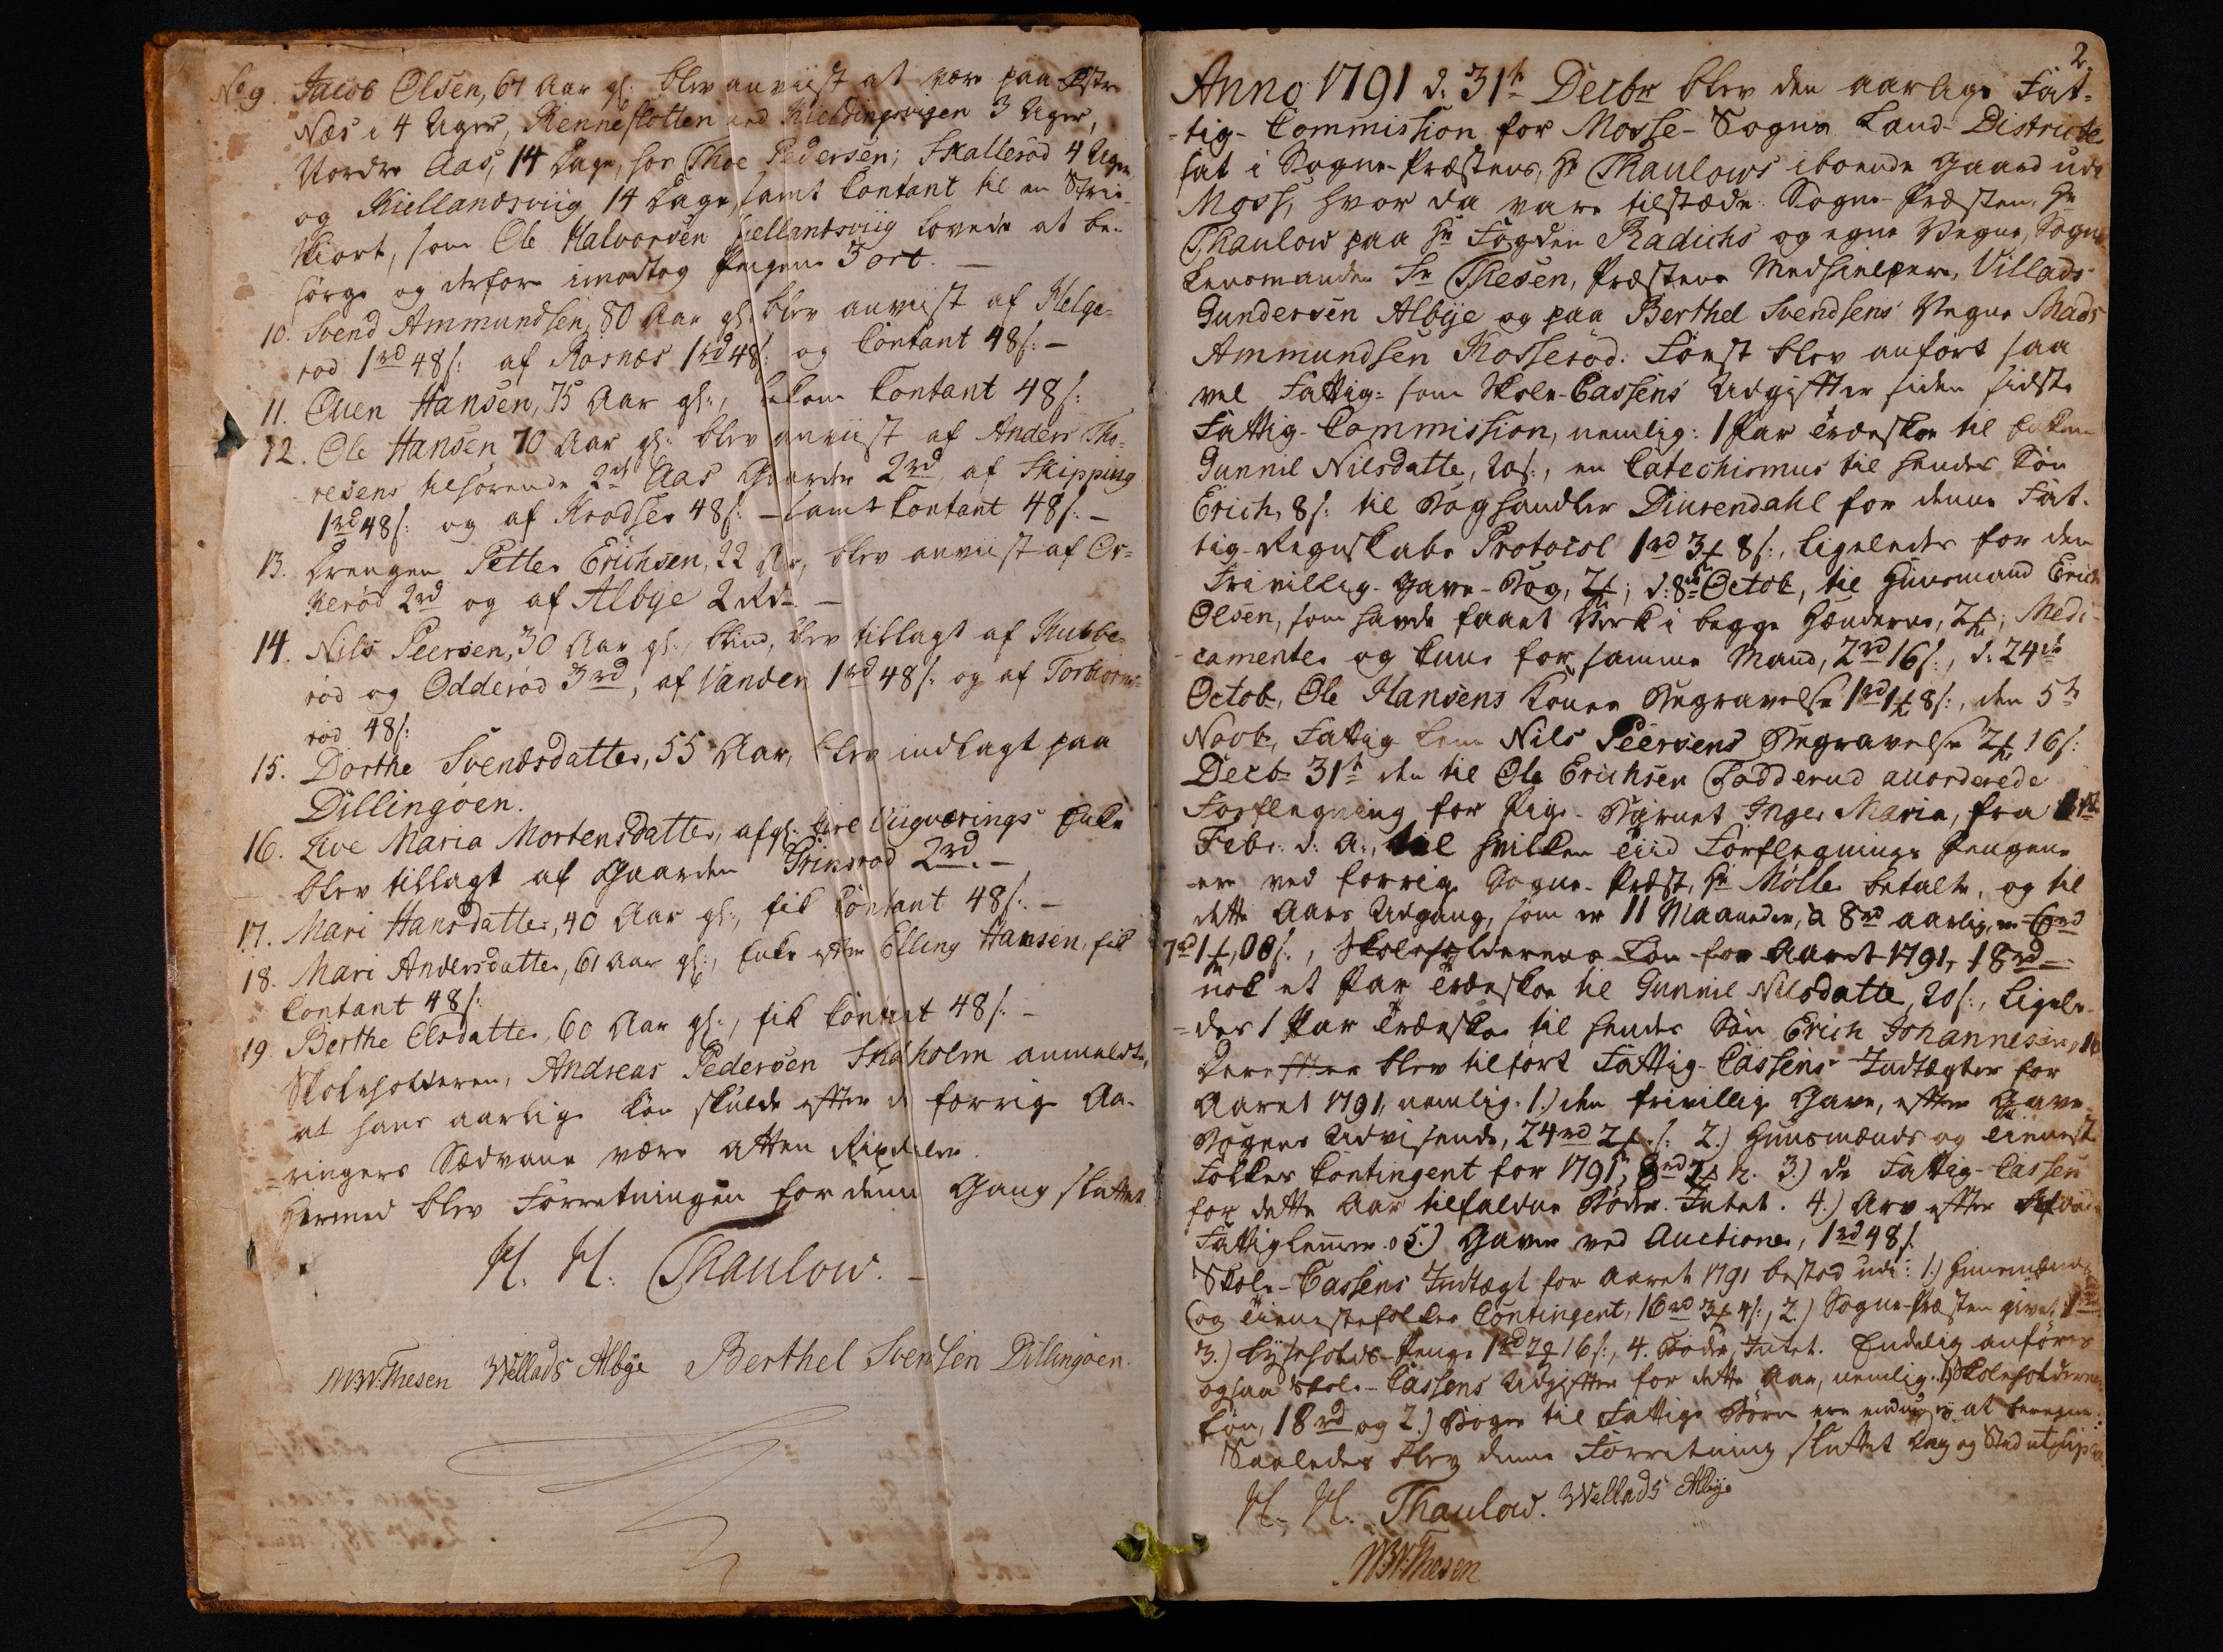 No 9. Jacob Olsen, 67 Aar gl: blev anviist at være paa Østre
Næs i 4 Uger, Renneflotten ved Kieldingsvigen 3 Uger,
Nordre Aas, 14 Dage, hos Thoe Pedersen; Skallerød 4 Uger
og Kiellandsviig 14 Dage, samt Contant til en Strie-
Skiort, som Ole Halvorsen Kiellandsviig lovede at be-
sørge og derfore imodtog Pengene 3 ort. –
10. Svend Ammundsen, 80 Aar gl: blev anviist af Helge-
rød 1rd 48 s: af Rosnæs 1rd 48 s: og Contant 48 s: –
11. Even Hansen, 75 Aar gl:, bekom Contant 48 s:
12. Ole Hansen 70 Aar gl: blev anviist af Anders Tho-
resens tilhørende 2de Aas Gaarder 2rd, af Skipping
1rd 48 s: og af Krodser 48 s: – samt Contant 48 s: –
13. Drengen Petter Erichsen, 22 Aar, blev anviist af Or-
kerød 2rd og af Albye 2 Rd –
14. Nils Peersen, 30 Aar gl:, blind, blev tillagt af Kubbe-
rød og Odderød 3rd, af Vanden 1rd 48 s: og af Torbiorns-
rød 48 s:
15. Dorthe Svendsdatter, 55 Aar, blev indlagt paa
Dillingøen.
16. Live Maria Mortensdatter, afgl: Iver Viigværings Enke
blev tillagt af Gaarden Grimsrød 2rd. –
17. Mari Hansdatter, 40 Aar gl:, fik Contant 48 s: –
18. Mari Andersdatter, 61 Aar gl:, Enke efter Elling Hansen, fik
Contant 48 s:
19. Berthe Elsdatter, 60 Aar gl:, fik Contant 48 s: –
Skoleholderen, Andreas Pedersen Skaholm anmeldte,
at hans aarlige Løn skulde efter de forrige Aa-
ringers Sædvane være atten Rixdaler.
Hermed blev Forretningen for denne Gang sluttet
H. H. Thaulow. –
N:W:Thesen Wellads Albye Berthel Svendsen Dillingøen.
2.
Anno 1791 d. 31te Decbr blev den aarlige Fat-
tig-Commission for Mosse-Sogns Land-Districte
sat i Sogne-Præstens, Hr Thaulows iboende Gaard udi
Moss, hvor da vare tilstæde: Sogne-Præsten, Hr
Thaulow paa Hr Fogden Radichs og egne Vegne, Sogne
Lensmanden Sr Thesen, Præstens Medhielpere, Villads
Gundersen Albye og paa Berthel Svendsens Vegne Mads
Ammundsen Kosserød. Først blev anført saa
vel Fattig- som Skole-Cassens Udgiffter siden sidste
Fattig-Commission, nemlig: 1 Par Træeskoe til Enken
Gunnil Nilsdatte, 20 s:, en Catechismus til hendes Søn
Erich, 8 s: til Boghandler Diurendahl for denne Fat-
tig-Regnskabs Protocol 1rd 3 8 s:, ligeledes for den
Frivillig-Gave-Bog, 2; d: 8de Octob, til Huusmand Erich
Olsen, som havde faaet Værk i begge Hænderne, 2; Medi-
camenter og Cuur for samme Mand, 2rd 16 s:, d: 24de
Octob, Ole Hansens Kones Begravelse 1rd 1 8 s:, den 5te
Novb, Fattig Lem Nils Peersens Begravelse 2 16 s:
Decb 31te den til Ole Erichsen Fodderud anordnede
Forflegning for Pige-Barnet Inger Maria, fra 1ste
Febr: d: A:, til hvilken Tiid Forflegnings Pengene
ere ved forrige Sogne-Præst, Hr Møller betalte, og til
dette Aars Udgang, som er 11 Maaneder, a 8rd aarlig, er 6rd
7rd 1, 08 s:, Skoleholderens Løn for Aaret 1791, 18rd –
nok et Par Træeskoe til Gunnil Nilsdatte, 20 s:, ligele-
des 1 Par Træeskoe til hendes Søn Erich Johannesen, 16
Derefter blev tilført Fattig-Cassens Indtægter for
Aaret 1791, nemlig: 1.) den frivillig Gave, efter Gave-
Bogens Udvisende, 24rd 2 s: 2.) Huusmænds og Tienest-
Folkes Contingent for 1791, 8rd 3 12. 3.) de Fattig-Cassen
for dette Aar tilfaldne Bøder. Intet. 4.) Arv efter Afdøde
Fattiglemmer. 0 5.) Gaver ved Auctioner, 1rd 48 s
Skole-Cassens Indtægt for Aaret 1791 bestod udi: 1.) Huusmænds
og Tienestefolkes Contingent, 16rd 3 4 s:, 2.) Sogne-Præsten givet 1rd
3.) Lyseholds-Penge 1rd 2 16 s:, 4. Bøder, Intet. Endelig anføres
ogsaa Skole-Cassens Udgifter for dette Aar, nemlig: 1) Skoleholderens
Løn, 18rd og 2.) Bøger til Fattige Børn ere endnu ej at beregne.
Saaledes blev denne Forretning sluttet Dag og Sted ut supra
H. H. Thaulow. Wellads Albye
N:W:Thesen